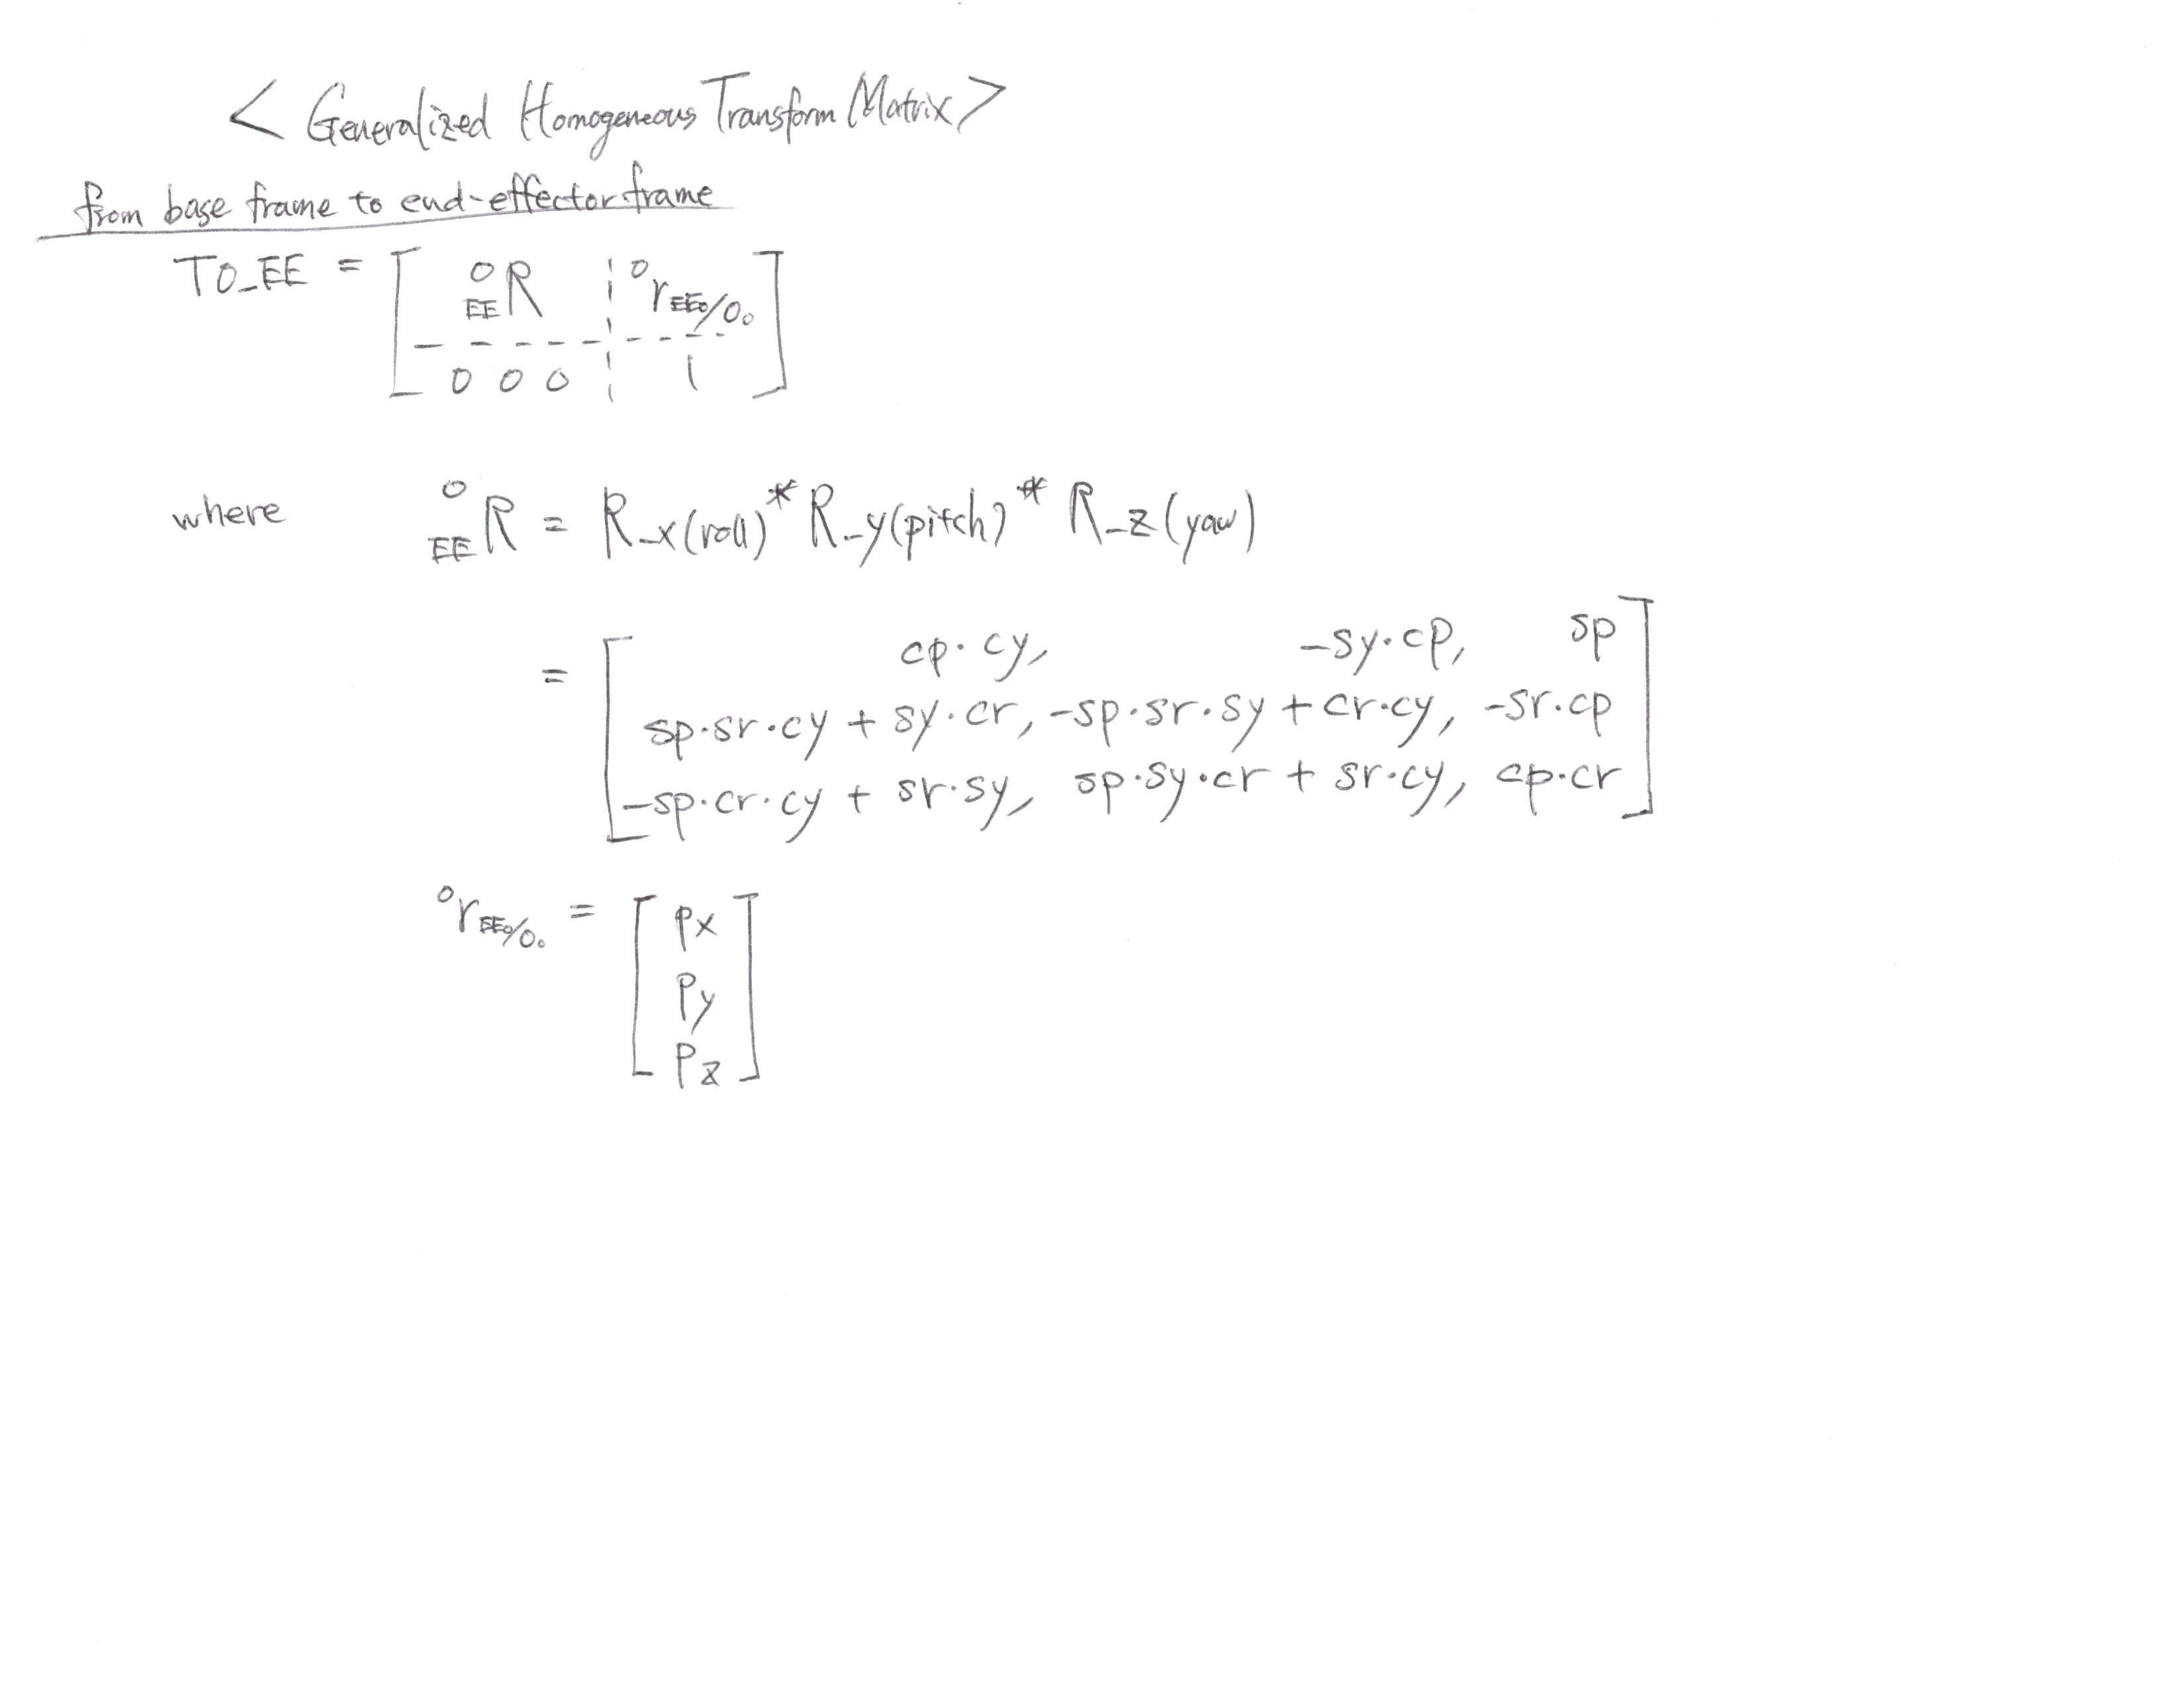 < Generalized Homogeneous Transform Matrix >
from base frame to end-effector frame
T0_EE = [ ⁰_EE R ¦ ⁰r_EEo/0o ]
0 0 0 ¦ 1
where ⁰_EE R = R_x(roll) * R_y(pitch) * R_z(yaw)
= [ cp·cy, -sy·cp, sp
sp·sr·cy + sy·cr, -sp·sr·sy + cr·cy, -sr·cp
-sp·cr·cy + sr·sy, sp·sy·cr + sr·cy, cp·cr ]
⁰r_EEo/0o = [ px
py
pz ]